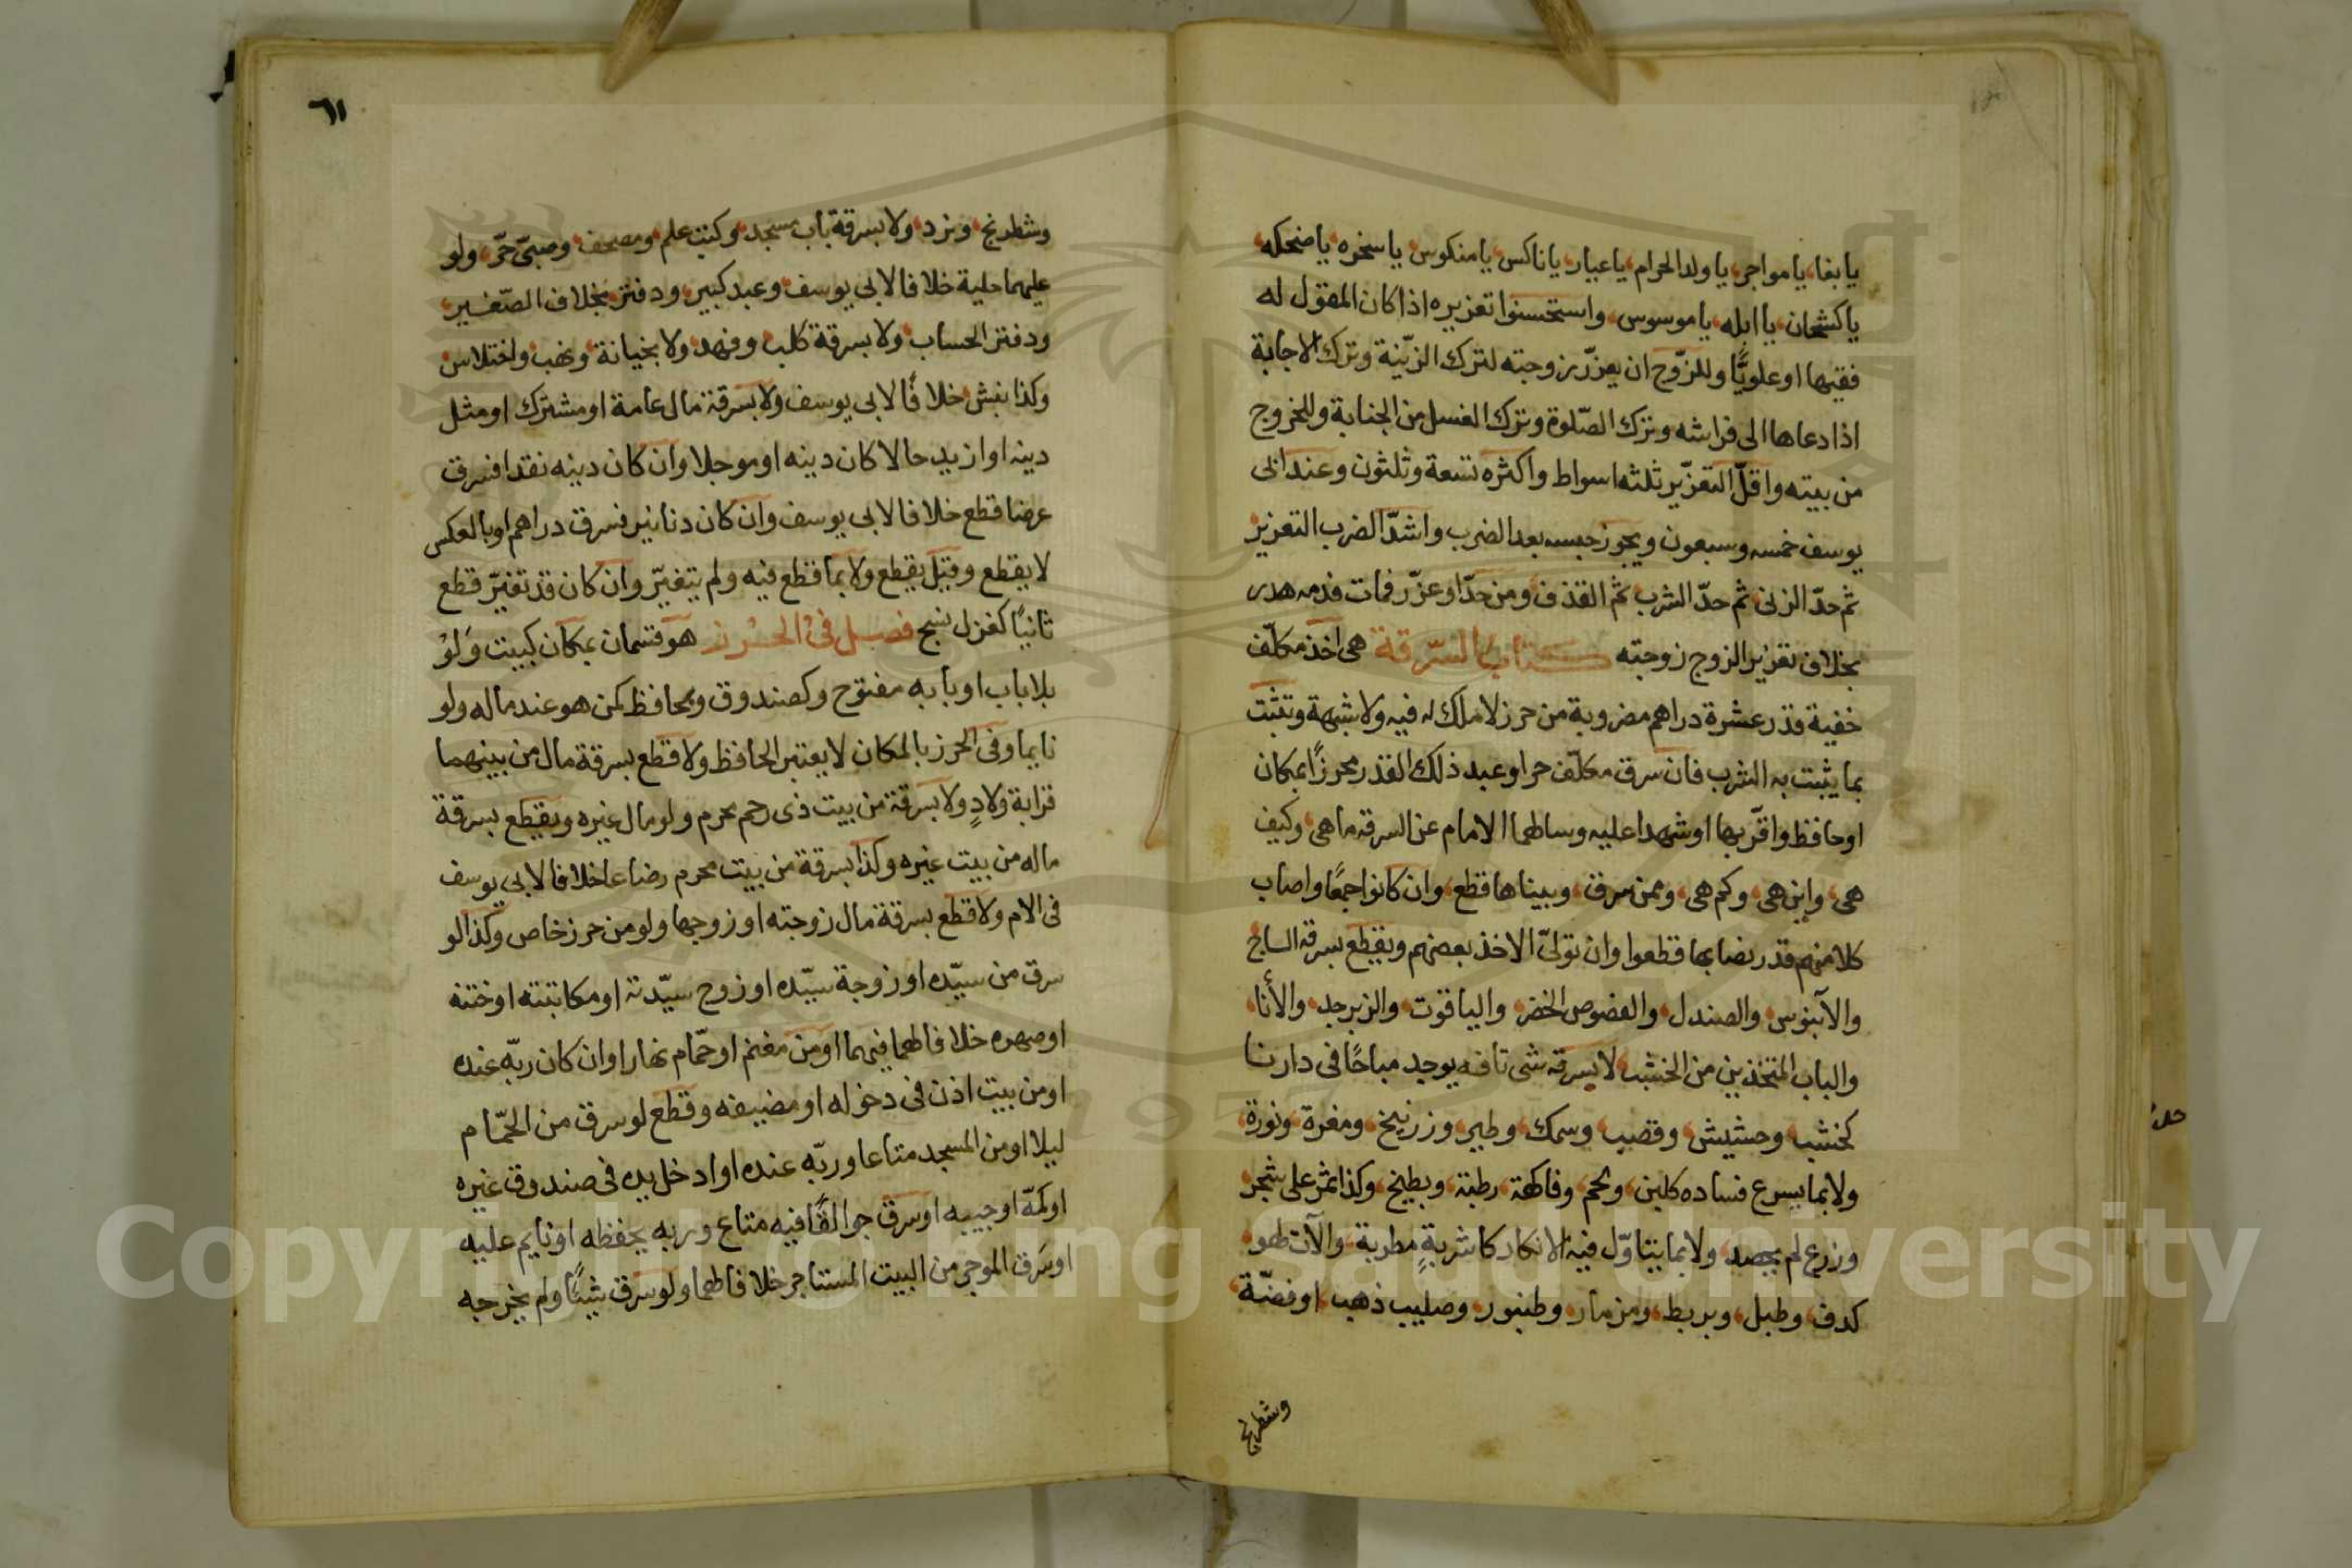 يابغا، يامواجر، ياولد الحرام، ياعيار، ياناكس، يامنكوس، ياسخره، ياضحكه،
ياكشحان، ياابله، ياموسوس، واستحسنوا تعزيره اذا كان المقول له
فقيها او علويًّا وللزّوج ان يعزّر زوجته لترك الزّينة وترك الاجابة
اذا دعاها الى فراشه وترك الصّلوة وترك الغسل من الجنابة وللخروج
من بيته واقلّ التعزّير ثلثه اسواط واكثره تسعة وثلثون وعند ابى
يوسف خمسه وسبعون ويجوز حبسه بعد الضرب واشدّ الضرب التعزيز
ثم حدّ الزنى، ثم حدّ الشرب ثم القذف، ومن حدّ او عزّر فمات فدمه هدر
بخلاف تعزير الزوج زوجته كتاب السّرقة هى اخذ مكلّف
خفية قدر عشرة دراهم مضروبة من حرز لا ملك له فيه ولا شبهة وتثبت
بما يثبت به الشرب فان سرق مكلّف حر او عبد ذلك القدر محرزًا بمكان
او حافظ واقرّ بها او شهدا عليه وسالهما الامام عن السرقه ما هى، وكيف
هى، واين هى، وكم هى، وممن سرق، وبيناها قطع، وان كانوا جمعًا واصاب
كلا منهم قدر نصابها قطعوا وان تولىّ الاخذ بعضهم ويقطع بسرقه الساج
والآبنوس، والصندل، والفصوص الخضر، والياقوت، والزبرجد، والأنا،
والباب المتخذين من الخشب، لا بسرقه شى تافه يوجد مباحًا فى دارنا
كخشب، وحشيش، وقصب، وسمك، وطير، وزرنيخ، ومغرة، ونورة،
ولا بما يسرع فساده كلبن، ولحم، وفاكهة، رطبة، وبطيخ، وكذا ثمر على شجر،
وزرع لم يحصد، ولا بما يتاوّل فيه الانكار كاشربةٍ مطربة، والآت لهو،
كدف، وطبل، وبربط، ومزمار، وطنبور، وصليب ذهب، او فضّة،
وشطرنج
٦١
وشطرنج، ونرد، ولا بسرقة باب مسجد، وكتب علم، ومصحف، وصبىّ حرّ، ولو
عليهما حلية خلافا لابى يوسف، وعبد كبير، ودفتر، بخلاف الصّغير،
ودفتر الحساب، ولا بسرقة كلب، وفهد، ولا بخيانة، ونهب، واختلاس،
وكذا نبش، خلافًا لابى يوسف ولا بسرقة مال عامة او مشترك او مثل
دينه او ازيد حالا كان دينه او موجلا وان كان دينه نقدا فسرق
عرضا قطع خلافا لابى يوسف وان كان دنانير فسرق دراهم او بالعكس
لا يقطع وقيل يقطع ولا بما قطع فيه ولم يتغيّر وان كان قد تغيّر قطع
ثانيًا كغزل نسج فصل فى الحرز هو قسمان بمكان كبيت وَلَوْ
بلا باب او بابه مفتوح وكصندوق وبحافظ كمن هو عند ماله ولو
نايما وفى الحرز بالمكان لا يعتبر الحافظ ولا قطع بسرقة مال من بينهما
قرابة ولادٍ ولا بسرقة من بيت ذى رحم محرم ولو مال غيره ويقطع بسرقة
ماله من بيت غيره وكذا بسرقة من بيت محرم رضاعا خلافا لابى يوسف
فى الام ولا قطع بسرقة مال زوجته او زوجها ولو من حرز خاص وكذا لو
سرق من سيّده او زوجة سيّده او زوج سيّدته او مكاتبته او ختنه
او صهره خلافا لهما فيهما او من مغنم او حمّام نهارا وان كان ربّه عنده
او من بيت اذن فى دخوله او مضيفه وقطع لو سرق من الحمّام
ليلا او من المسجد متاعا وربّه عنده او ادخل يده فى صندوق غيره
او كمّه او جيبه او سرق جوالقًا فيه متاع وربه يحفظه او نايم عليه
او سَرق الموجر من البيت المستاجر خلافا لهما ولو سرق شيئًا ولم يخرجه
Copyright © King Saud University
1957